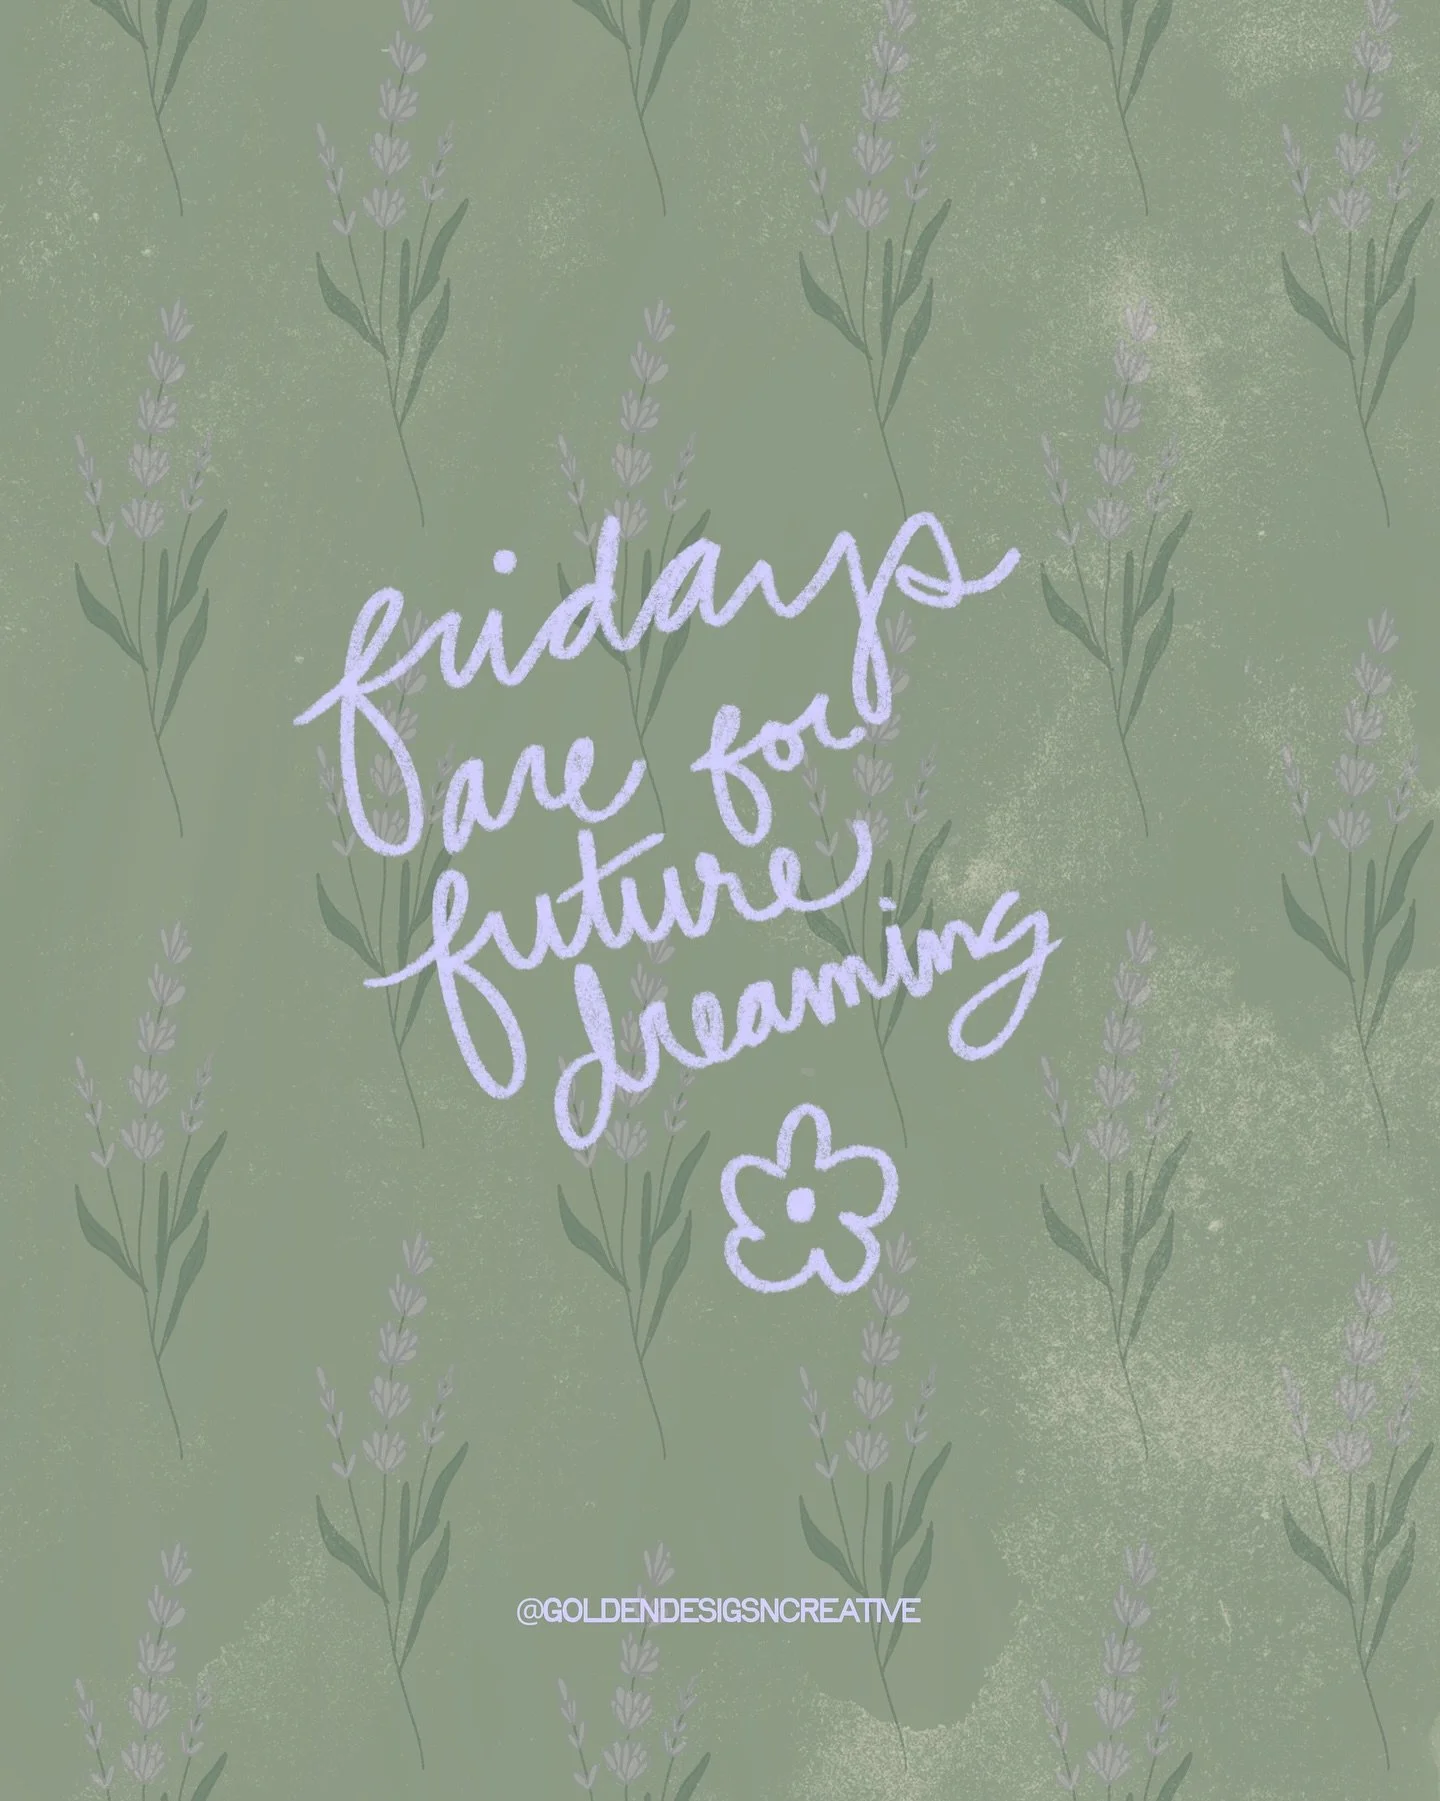 fridays
are for
future
dreaming
@GOLDENDESIGSNCREATIVE